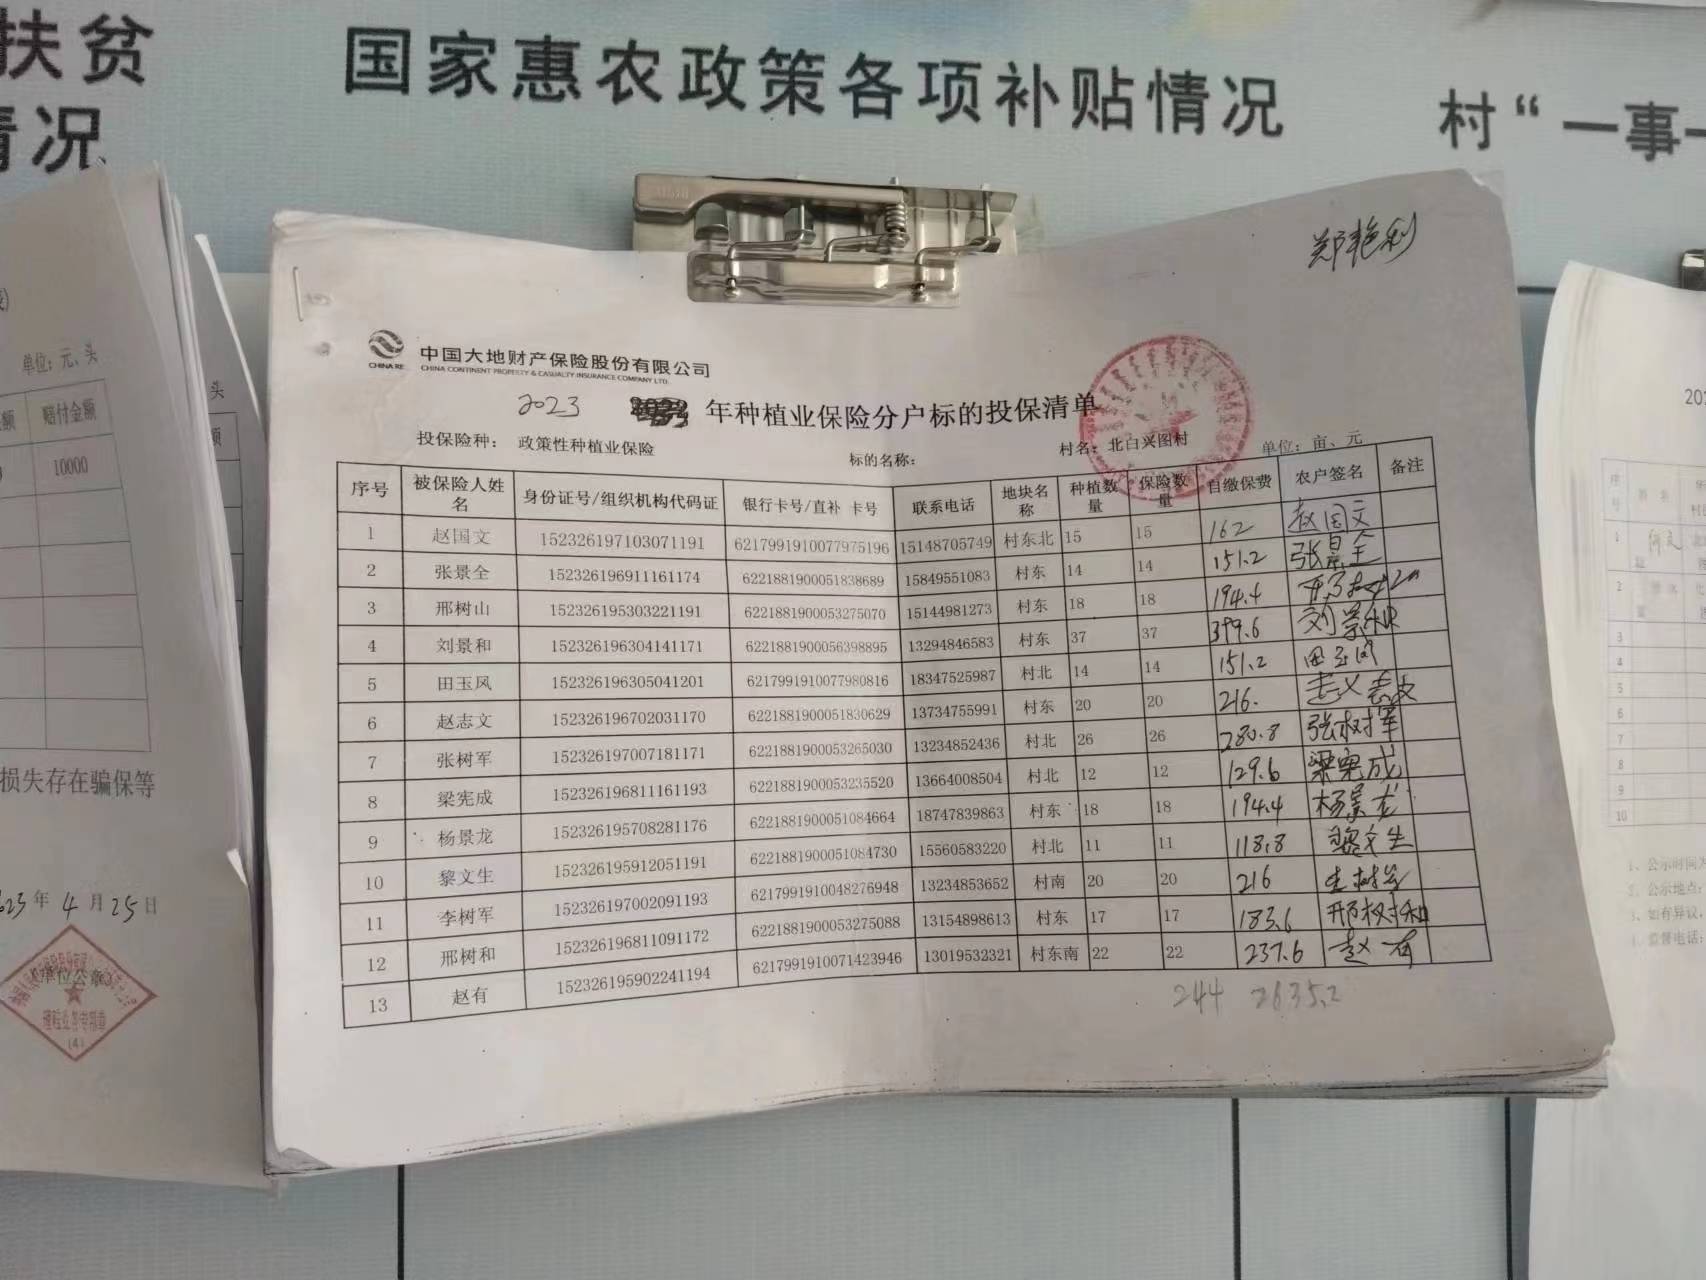 扶贫
情况
国家惠农政策各项补贴情况
村“一事一
郑艳利
中国大地财产保险股份有限公司
CHINA RE
CHINA CONTINENT PROPERTY & CASUALTY INSURANCE COMPANY LTD.
2023 年种植业保险分户标的投保清单
投保险种： 政策性种植业保险 标的名称： 村名：北白兴图村 单位：亩、元
序号 被保险人姓名 身份证号/组织机构代码证 银行卡号/直补 卡号 联系电话 地块名称 种植数量 保险数量 自缴保费 农户签名 备注
1 赵国文 152326197103071191 6217991910077975196 15148705749 村东北 15 15 162 赵国文
2 张景全 152326196911161174 6221881900051838689 15849551083 村东 14 14 151.2 张景全
3 邢树山 152326195303221191 6221881900053275070 15144981273 村东 18 18 194.4 邢树山
4 刘景和 152326196304141171 6221881900056398895 13294846583 村东 37 37 399.6 刘景和
5 田玉风 152326196305041201 6217991910077980816 18347525987 村北 14 14 151.2 田玉风
6 赵志文 152326196702031170 6221881900051830629 13734755991 村东 20 20 216. 赵志文
7 张树军 152326197007181171 6221881900053265030 13234852436 村北 26 26 280.8 张树军
8 梁宪成 152326196811161193 6221881900053235520 13664008504 村北 12 12 129.6 梁宪成
9 杨景龙 152326195708281176 6221881900051084664 18747839863 村东 18 18 194.4 杨景龙
10 黎文生 152326195912051191 6221881900051084730 15560583220 村北 11 11 118.8 黎文生
11 李树军 152326197002091193 6217991910048276948 13234853652 村南 20 20 216
12 邢树和 152326196811091172 6221881900053275088 13154898613 村东 17 17 183.6 邢树和
13 赵有 152326195902241194 6217991910071423946 13019532321 村东南 22 22 237.6 赵有
244 2635.2
单位：元、头
额 赔付金额
10000
损失存在骗保等
2023年4月25日
单位公章
(4)
头
额
201
序号 姓名
1
2
3
4
5
6
7
8
9
10
1、公示时间为
2、公示地点：
3、如有异议，
4、监督电话：